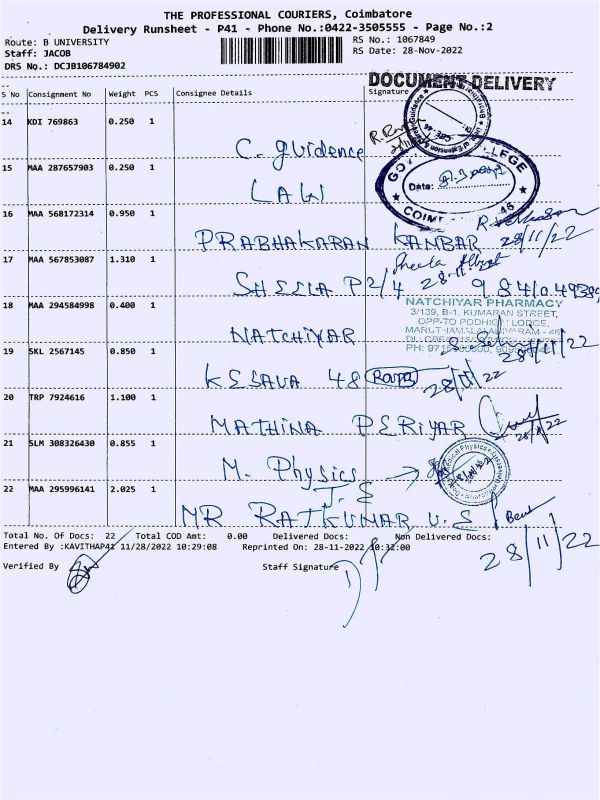 THE PROFESSIONAL COURIERS, Coimbatore
Delivery Runsheet - P41 - Phone No.:0422-3505555 - Page No.:2
Route: B UNIVERSITY
RS No.: 1067849
Staff: JACOB
RS Date: 28-Nov-2022
DRS No.: DCJB106784902
DOCUMENT DELIVERY
S No Consignment No Weight PCS Consignee Details Signature
14 KDI 769863 0.250 1
C. guidence
15 MAA 287657903 0.250 1
LAW
Date:
16 MAA 568172314 0.950 1
PRABHAKARAN KANBAR 28/11/22
17 MAA 567853087 1.310 1
Sheela
SHEELA P 2/4 28-11-22
18 MAA 294584998 0.400 1
NATCHIYAR PHARMACY
3/139, B-1, KUMARAN STREET,
NATCHIYAR
19 SKL 2567145 0.850 1
28/11/22
KESAVA 48
28/11/22
20 TRP 7924616 1.100 1
MATHINA PERIYAR
21 SLM 308326430 0.855 1
M. Physics
22 MAA 295996141 2.025 1
MR RAJKUMAR
Total No. Of Docs: 22 Total COD Amt: 0.00 Delivered Docs: Non Delivered Docs:
Entered By :KAVITHAP41 11/28/2022 10:29:08 Reprinted On: 28-11-2022 10:32:00
28/11/22
Verified By
Staff Signature